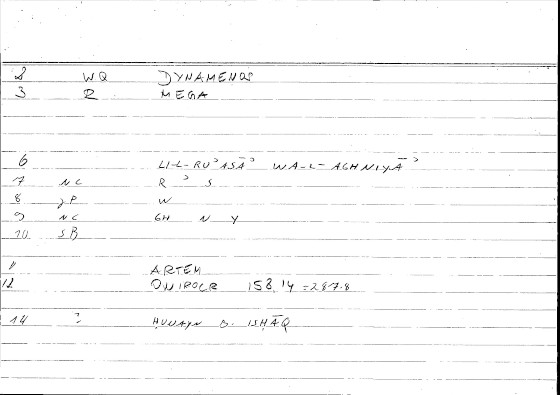 2 WQ DYNAMENOS
3 R MEGA
6 LI-L-RUʾASĀʾ WA-L-AGHNIYĀʾ
7 NC R ʾ S
8 JP W
9 NC GH N Y
10 SB
11 ARTEM
12 ONIROCR 158.14 = 287.8
14 ? ḤUNAYN B. ISḤĀQ